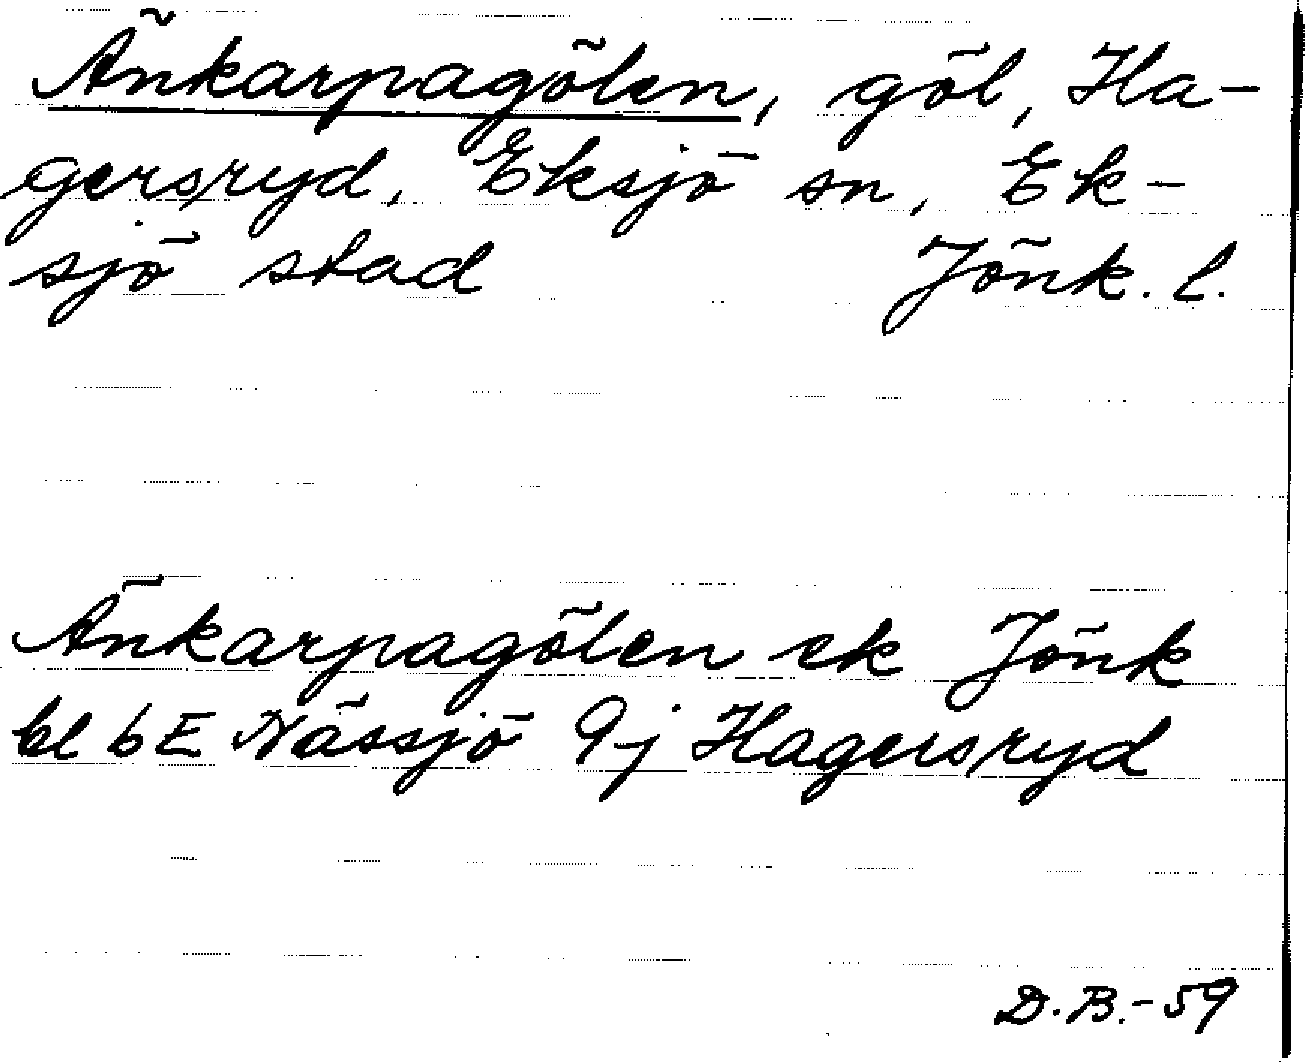 Änkarpagölen, göl, Ha-
gersryd, Eksjö sn, Ek-
sjö stad Jönk. l.
Änkarpagölen ek Jönk
bl 6E Nässjö 9j Hagersryd
D.B.-59